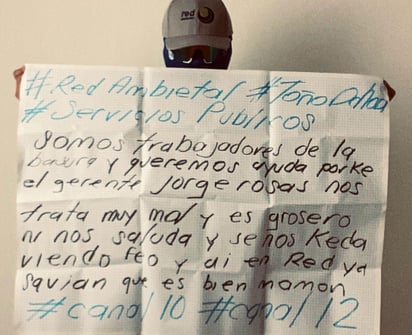 red
#Red Ambietal #Toño Ochoa
#Servicios Publicos
Somos trabajadores de la
basura y queremos ayuda porke
el gerente jorge rosas nos
trata muy mal y es grosero
ni nos saluda y se nos Keda
viendo feo y ai en Red ya
savian que es bien mamon
#canal 10 #canal 12